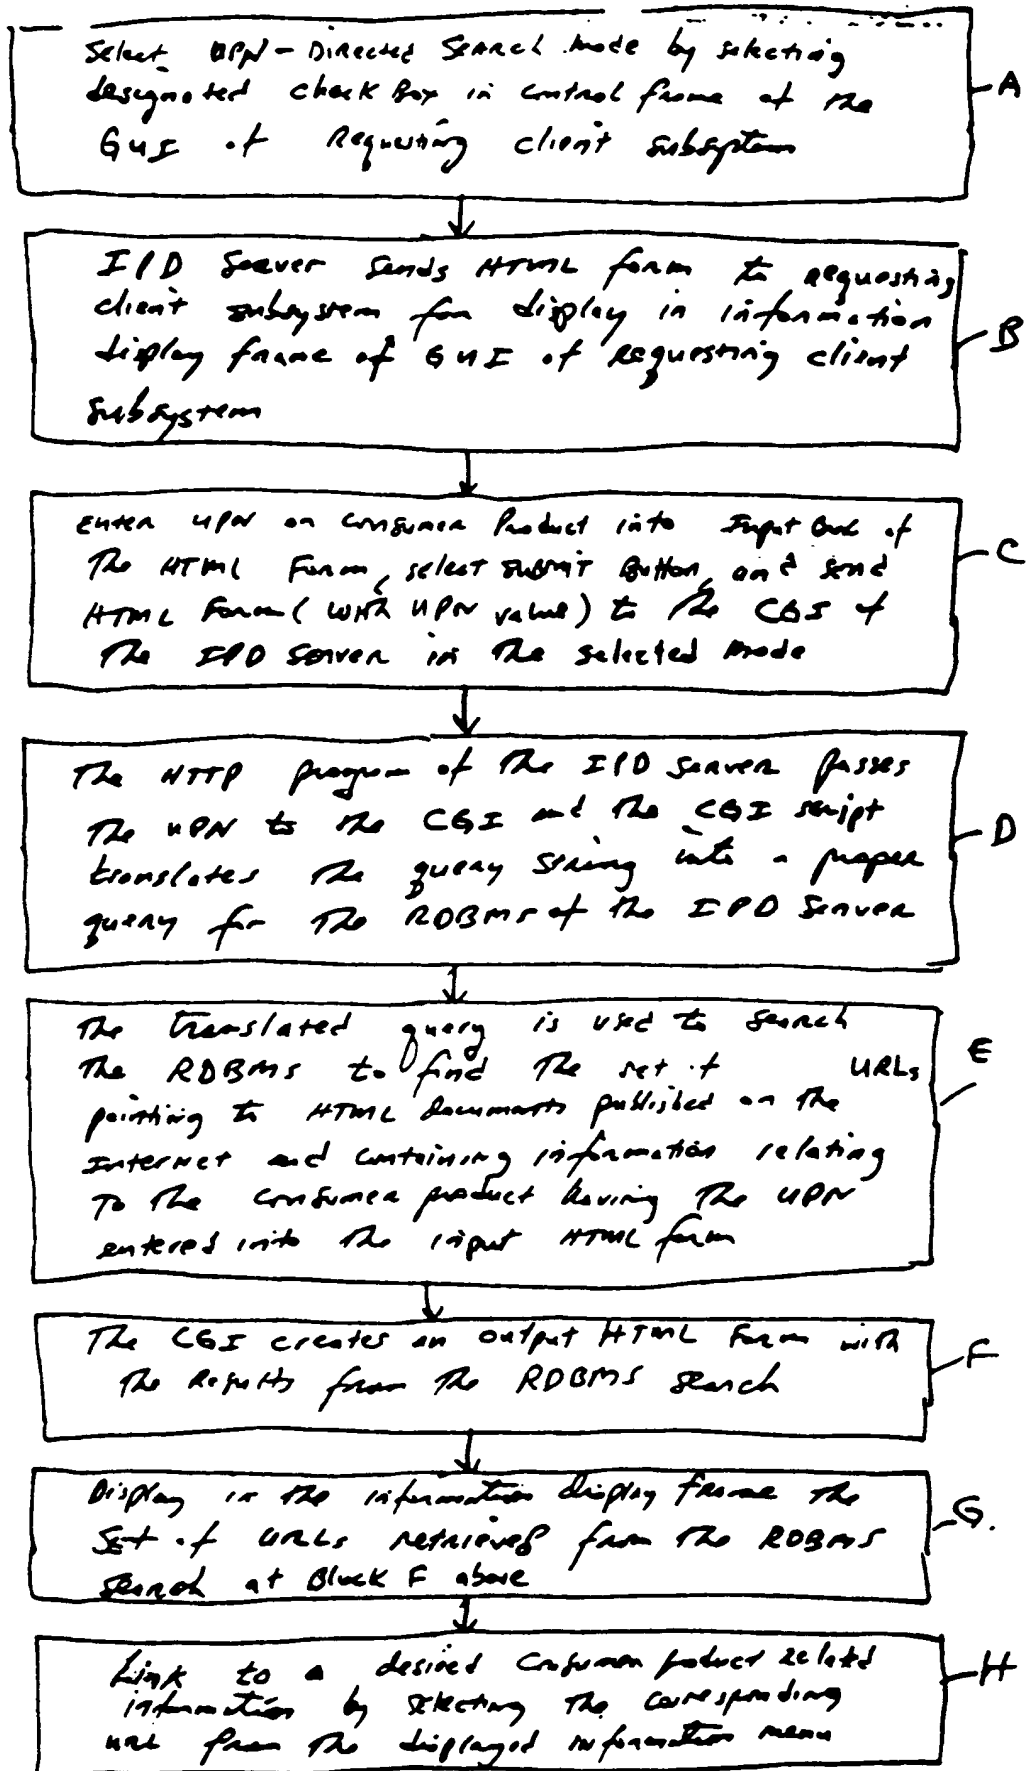 Select UPN-Directed Search Mode by selecting
designated check Box in control frame of the
GUI of Requesting client subsystem
A
IPD Server Sends HTML form to requesting
client subsystem for display in information
display frame of GUI of Requesting client
subsystem
B
Enter UPN on Consumer Product into Input Box of
The HTML Form, select submit Button, and send
HTML Form (with UPN value) to the CGI of
The IPD Server in the selected Mode
C
The HTTP program of the IPD Server passes
The UPN to the CGI and the CGI script
translates the query string into a proper
query for the RDBMS of the IPD Server
D
The translated query is used to search
The RDBMS to find the set of URLs
pointing to HTML documents published on the
Internet and containing information relating
To the consumer product having the UPN
entered into the input HTML form
E
The CGI creates an output HTML Form with
The Results from the RDBMS search
F
Display in the information display frame the
Set of URLs retrieved from the RDBMS
Search at Block F above
G.
Link to a desired Consumer product related
information by selecting the corresponding
URL from the displayed information menu
H